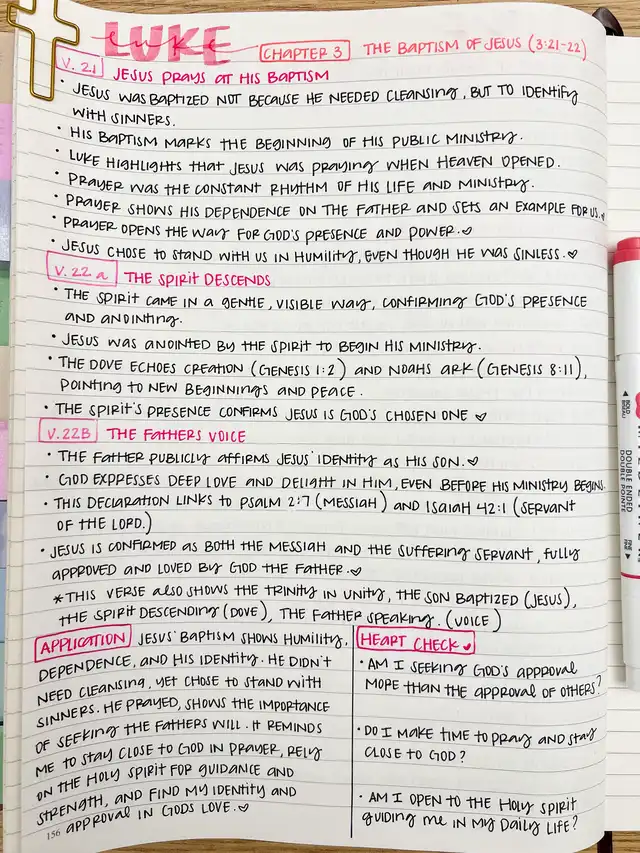 LUKE
CHAPTER 3 THE BAPTISM OF JESUS (3:21-22)
V. 21 JESUS PRAYS AT HIS BAPTISM
• JESUS WAS BAPTIZED NOT BECAUSE HE NEEDED CLEANSING, BUT TO IDENTIFY
WITH SINNERS.
• HIS BAPTISM MARKS THE BEGINNING OF HIS PUBLIC MINISTRY.
• LUKE HIGHLIGHTS THAT JESUS WAS PRAYING WHEN HEAVEN OPENED.
• PRAYER WAS THE CONSTANT RHYTHM OF HIS LIFE AND MINISTRY.
• PRAYER SHOWS HIS DEPENDENCE ON THE FATHER AND SETS AN EXAMPLE FOR US.
• PRAYER OPENS THE WAY FOR GOD'S PRESENCE AND POWER.♡
• JESUS CHOSE TO STAND WITH US IN HUMILITY, EVEN THOUGH HE WAS SINLESS.♡
V. 22 a THE SPIRIT DESCENDS
• THE SPIRIT CAME IN A GENTLE, VISIBLE WAY, CONFIRMING GOD'S PRESENCE
AND ANOINTING.
• JESUS WAS ANOINTED BY THE SPIRIT TO BEGIN HIS MINISTRY.
• THE DOVE ECHOES CREATION (GENESIS 1:2) AND NOAHS ARK (GENESIS 8:11),
POINTING TO NEW BEGINNINGS AND PEACE.
• THE SPIRIT'S PRESENCE CONFIRMS JESUS IS GOD'S CHOSEN ONE ♡
V. 22B THE FATHERS VOICE
• THE FATHER PUBLICLY AFFIRMS JESUS' IDENTITY AS HIS SON.♡
• GOD EXPRESSES DEEP LOVE AND DELIGHT IN HIM, EVEN BEFORE HIS MINISTRY BEGINS.
• THIS DECLARATION LINKS TO PSALM 2:7 (MESSIAH) AND ISAIAH 42:1 (SERVANT
OF THE LORD.)
• JESUS IS CONFIRMED AS BOTH THE MESSIAH AND THE SUFFERING SERVANT, FULLY
APPROVED AND LOVED BY GOD THE FATHER.♡
*THIS VERSE ALSO SHOWS THE TRINITY IN UNITY, THE SON BAPTIZED (JESUS),
THE SPIRIT DESCENDING (DOVE), THE FATHER SPEAKING. (VOICE)
APPLICATION JESUS' BAPTISM SHOWS HUMILITY,
DEPENDENCE, AND HIS IDENTITY. HE DIDN'T
NEED CLEANSING, YET CHOSE TO STAND WITH
SINNERS. HE PRAYED, SHOWS THE IMPORTANCE
OF SEEKING THE FATHERS WILL. IT REMINDS
ME TO STAY CLOSE TO GOD IN PRAYER, RELY
ON THE HOLY SPIRIT FOR GUIDANCE AND
STRENGTH, AND FIND MY IDENTITY AND
APPROVAL IN GODS LOVE.♡
HEART CHECK ♥
• AM I SEEKING GOD'S APPROVAL
MORE THAN THE APPROVAL OF OTHERS?
• DO I MAKE TIME TO PRAY AND STAY
CLOSE TO GOD?
• AM I OPEN TO THE HOLY SPIRIT
GUIDING ME IN MY DAILY LIFE?
156
BOLD
DOUBLE ENDED
DOUBLE POINTE
FINE